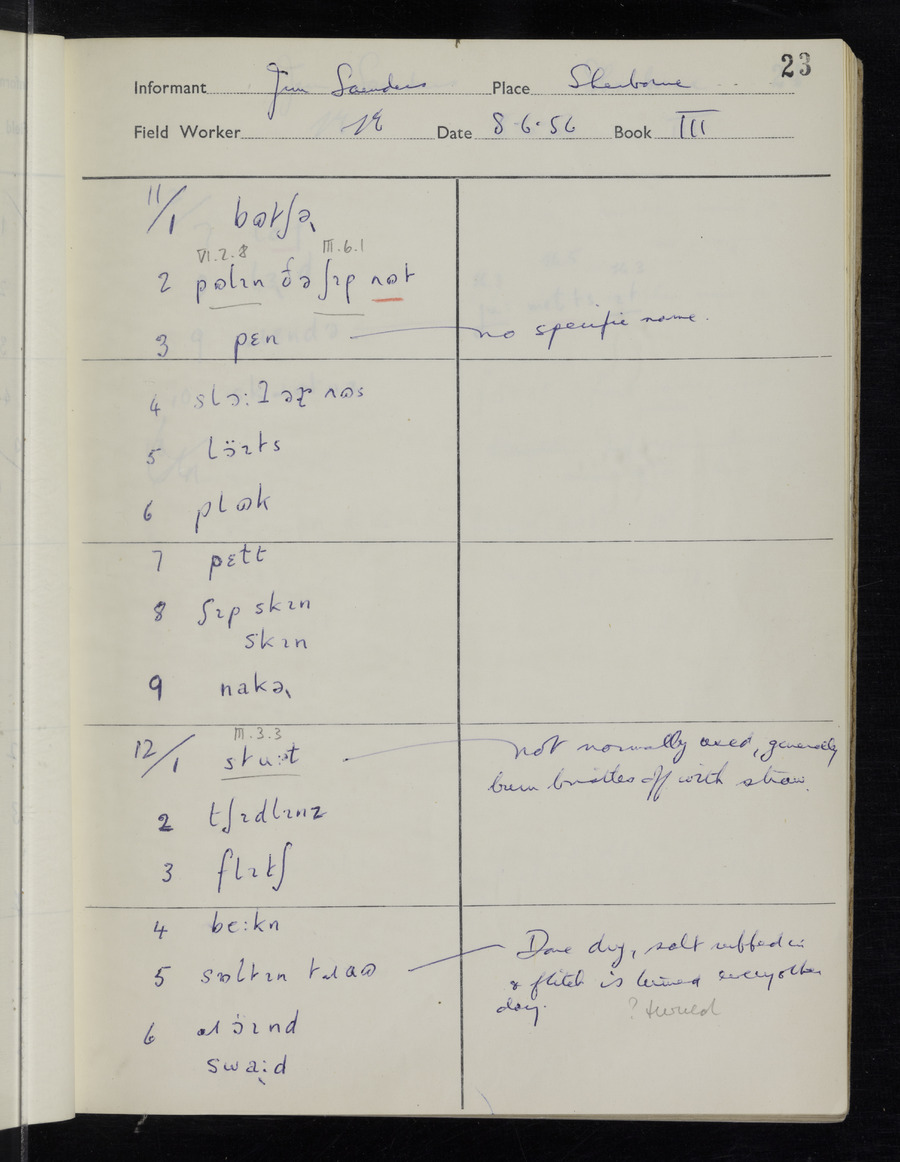 23
Informant Jim Saunders Place Sherborne
Field Worker Date 8·6·56 Book III
11/1 bɷtʃə˞
VI.2.8 III.6.1
2 pɷlɪn ðə ʃɪp nɷt
3 pɛn no specific name.
4 slɔ:
5 lɔ̈ɪts
6 plɷk
7 pɛtt
8 ʃɪp skɪn
skɪn
9 nakə˞
III.3.3
12/1 not normally used, generally
burn bristles off with straw.
2 tʃɪdlɪnz
3 flɪtʃ
4 be:kn
5 sɒltɪn Done dry, salt rubbed in
& flitch is turned every other
day. ? turned
6
swa:d